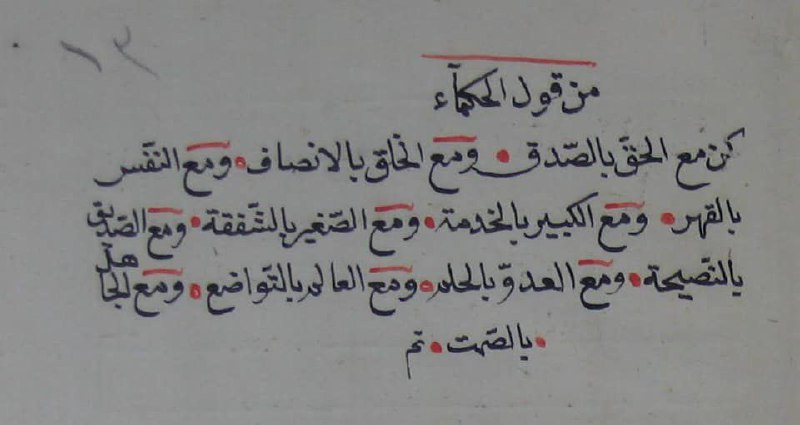 ١٣
من قول الحكمآء
كن مع الحقّ بالصّدق • ومع الخلق بالانصاف • ومع النفس
بالقهر • ومع الكبير بالخدمة • ومع الصّغير بالشّفقة • ومع الصّديق
بالنّصيحة • ومع العدوّ بالحلم • ومع العالم بالتّواضع • ومع الجاهل
• بالصّمت • تم